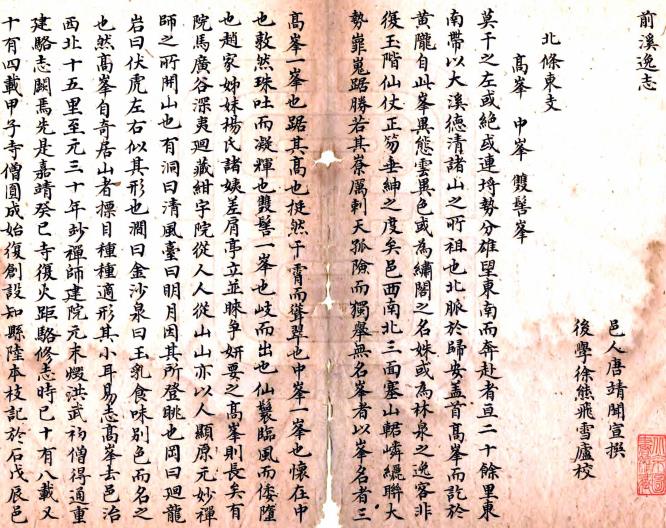 前溪逸志
邑人唐靖聞宣撰
後學徐熊飛雪廬校
北條東支
高峯 中峯 雙髻峯
莫干之左或絶或連埓勢分雄望東南而奔赴者亘二十餘里東
南帶以大溪德清諸山之所祖也北脈於歸安盖首高峯而訖於
黄隴自此峯異態雲異色或為繡閣之名姝或為林泉之逸客非
復玉階仙仗正笏垂紳之度矣邑西南北三面塞山轖嶙纚聯大
勢辠嵬踞勝若其嶚厲刺天孤險而獨舉無名峯者以峯名者三
高峯一峯也踞其高也挺然干霄而聳翠也中峯一峯也懷在中
也敦然珠吐而凝輝也雙髻一峯也岐而出也仙鬟臨風而倭墮
也趙家姊妹楊氏諸姨差肩亭立並睞争妍要之高峯則長矣有
院馬廣谷深夷廻藏紺宇院從人人從山山亦以人顯原元妙禪
師之所開山也有洞曰清風臺曰明月因其所登眺也岡曰廻龍
岩曰伏虎左右似其形也澗曰金沙泉曰玉乳食味别色而名之
也然高峯自奇居山者標目種種適形其小耳易志高峯去邑治
西北十五里至元三十年玅禪師建院元末燬洪武初僧得適重
建駱志闕焉先是嘉靖癸巳寺復火距駱修志時已十有八載又
十有四載甲子寺僧圓成始復創設知縣陸本枝記於石戊辰邑